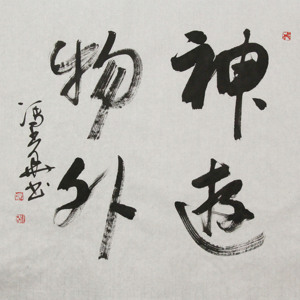 神游
物外